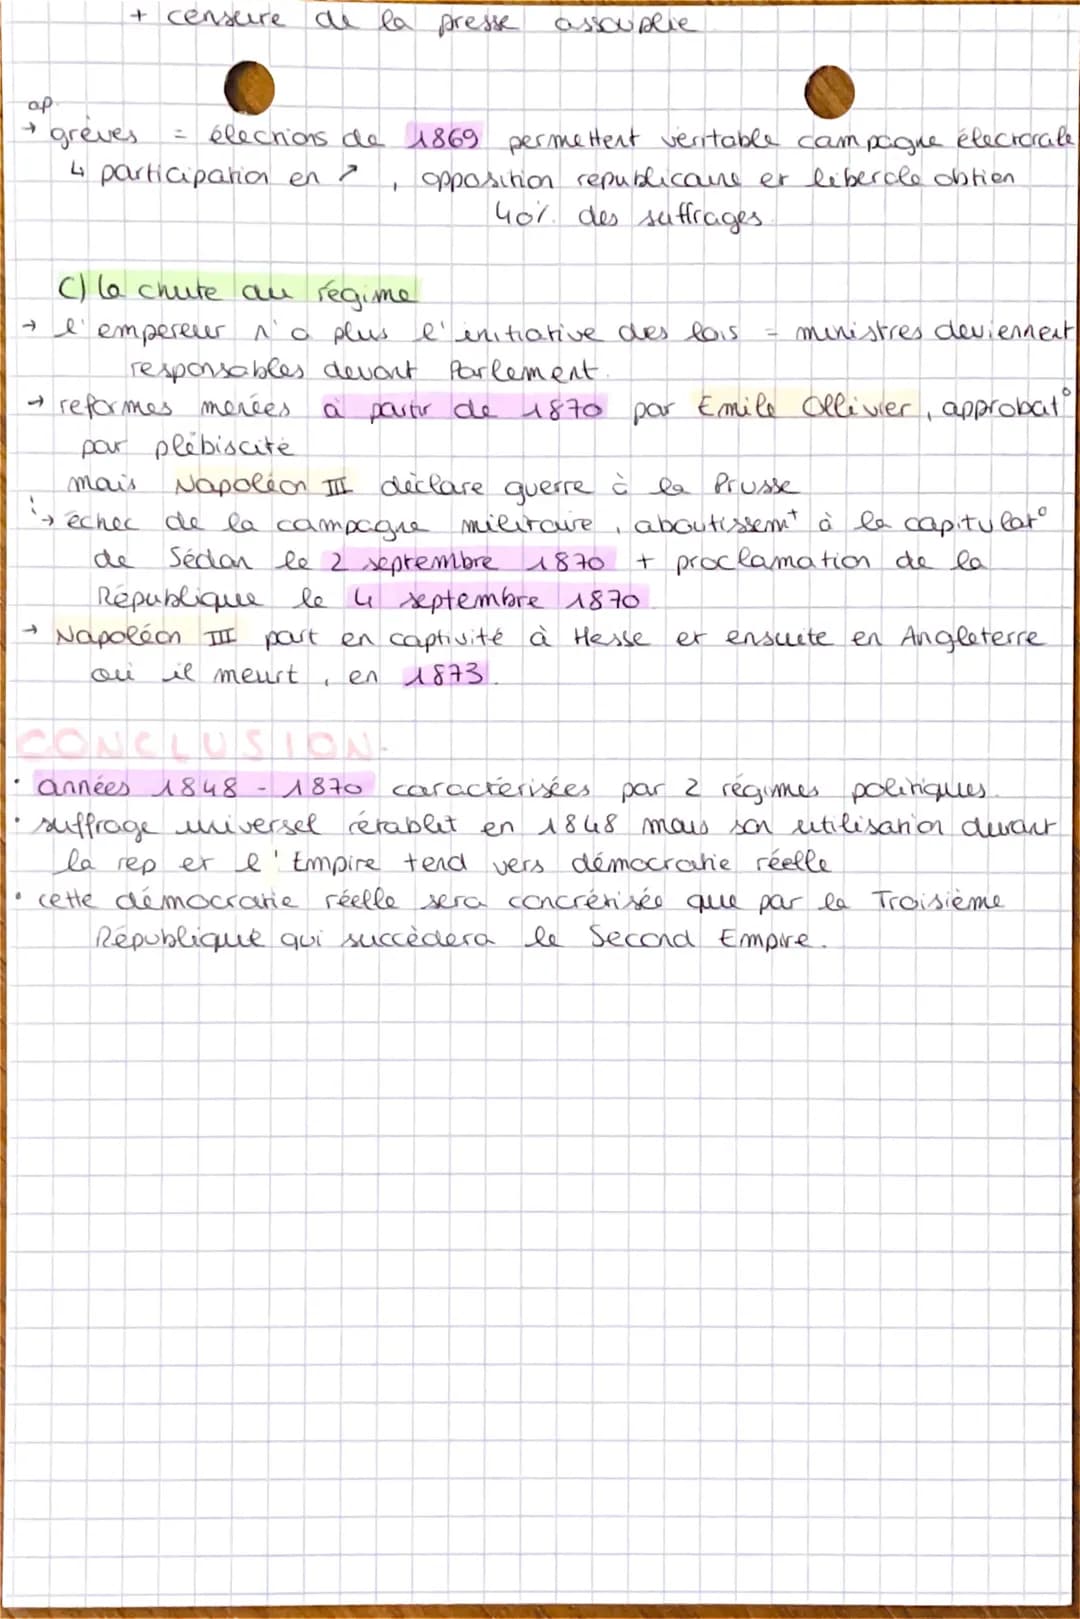 + censure de la presse assouplie
ap.
→ grèves = élections de 1869 permettent véritable campagne électorale
↳ participation en ↗, opposition republicaine et liberale obtien
40% des suffrages.
C) la chute du régime
→ l'empereur n'a plus l'initiative des lois = ministres deviennent
responsables devant Parlement.
→ reformes menées à partir de 1870 par Emile Ollivier, approbat°
par plébiscite
mais Napoléon III déclare guerre à la Prusse
↳ échec de la campagne militaire, aboutissemt à la capitulat°
de Sédan le 2 septembre 1870 + proclamation de la
République le 4 septembre 1870
→ Napoléon III part en captivité à Hesse et ensuite en Angleterre
où il meurt, en 1873.
CONCLUSION.
• années 1848 - 1870 caractérisées par 2 régimes politiques.
• suffrage universel rétablit en 1848 mais son utilisation durant
la rep et l'Empire tend vers démocratie réelle
• cette démocratie réelle sera concrétisée que par la Troisième
République qui succèdera le Second Empire.